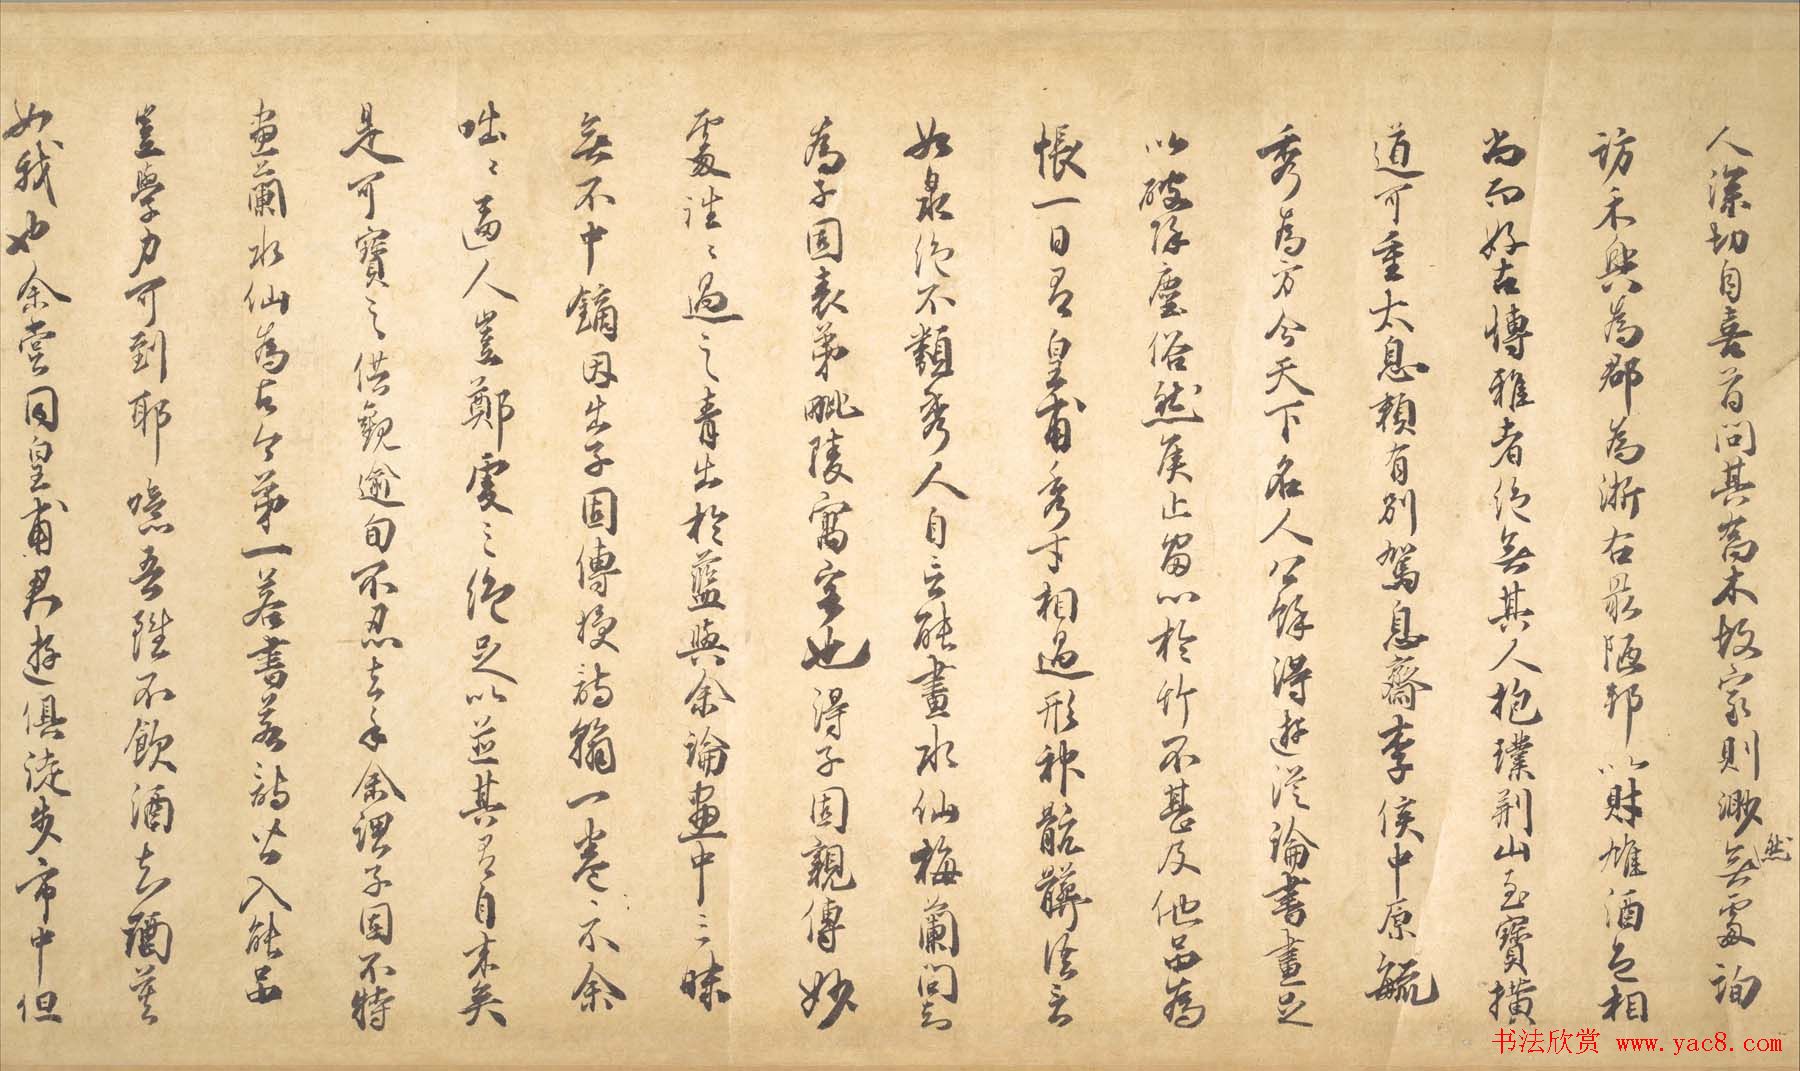 人深切自喜首問其喬木故家則渺然無處詢
訪禾興為郡為浙右最陋邦以財雄酒色相
尚而好古博雅者絕無其人抱璞荊山至寶橫
道可重太息賴有別駕息齋李侯中原毓
秀為方今天下名人公餘得遊從論書畫足
以破除塵俗然侯止留心於竹不甚及他品為
悵一日有皇甫秀才相過形神骯髒語言
如泉絕不類秀人自言能畫水仙梅蘭問知
為子固表弟毗陵寓客也得子固親傳妙
處往往過之青出於藍與余論畫中三昧
無不中鏑因出子固傳授詩翰一卷示余
咄咄逼人豈鄭虔之絕足以並其有自來矣
是可寶之供觀逾旬不忍去手余謂子固不特
畫蘭水仙為古今第一若書若詩皆入能品
豈學力可到耶噫吾雖不飲酒知酒莫
如我也余嘗同皇甫君遊俱徒步市中但
书法欣赏 www.yac8.com